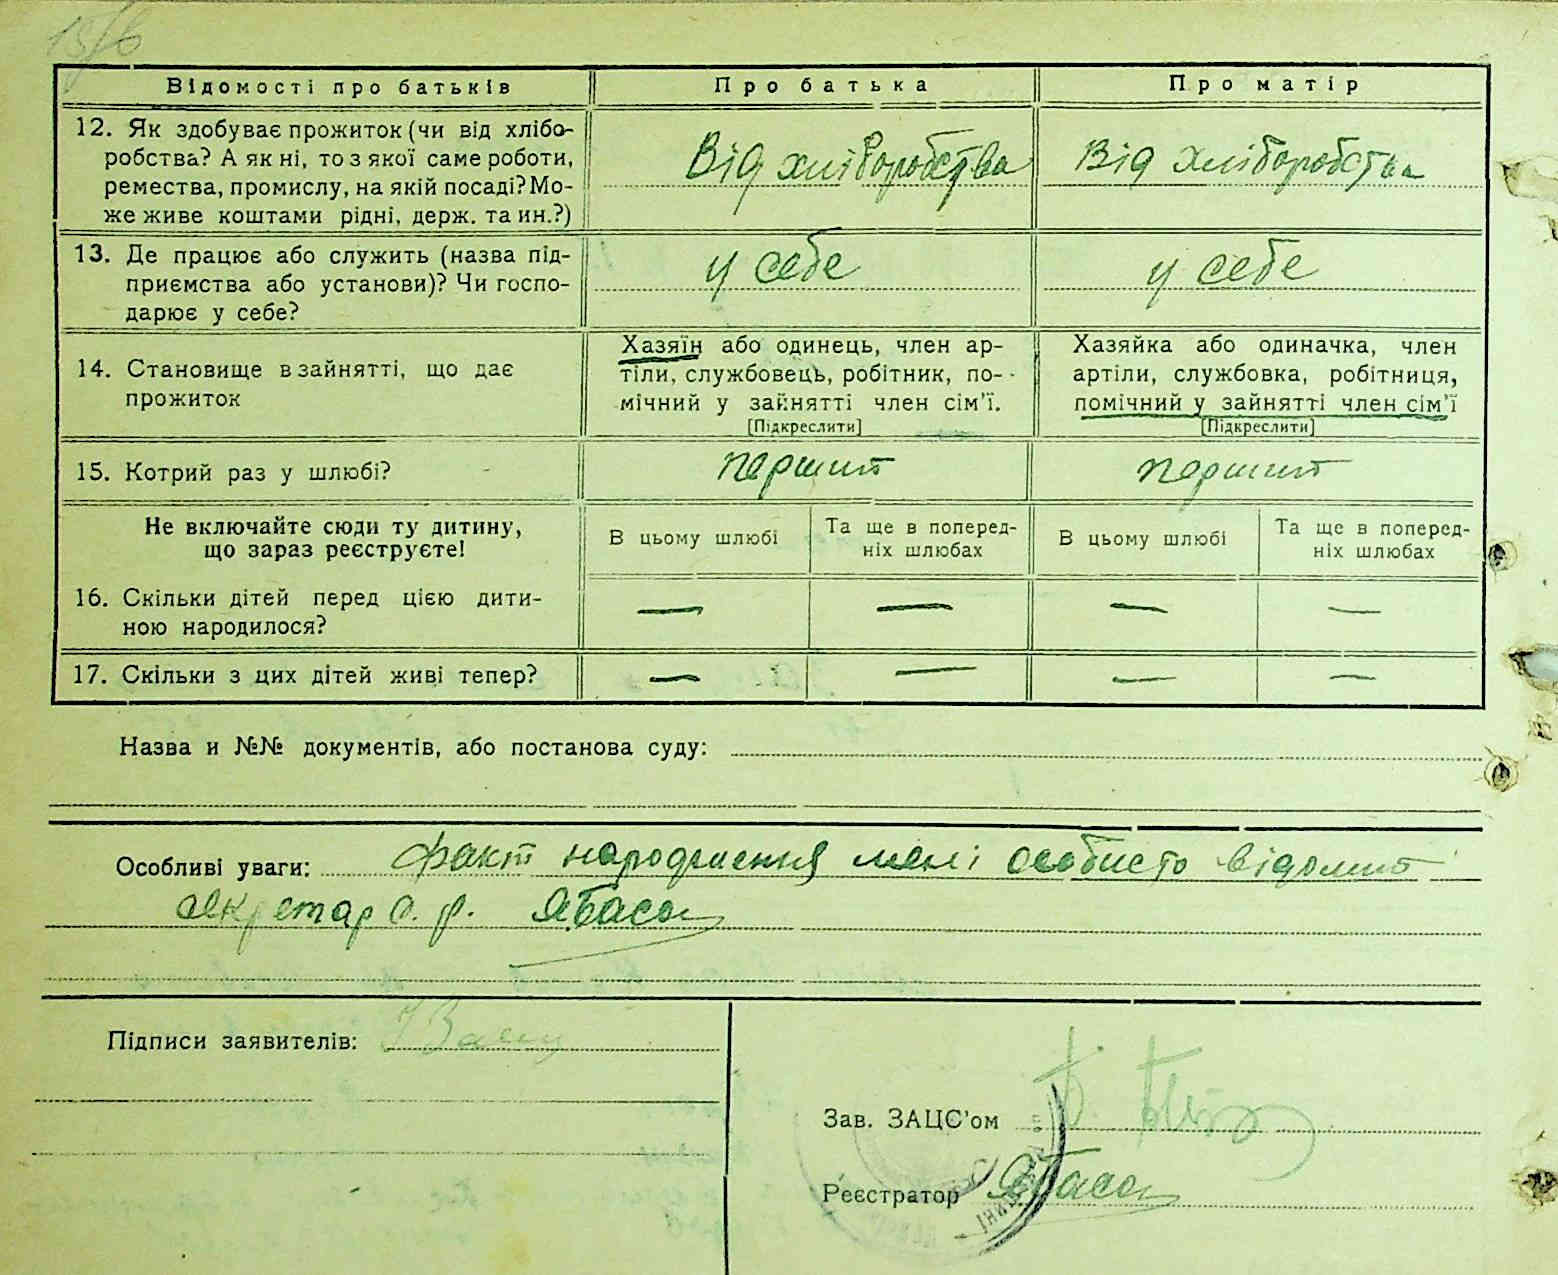 15/6
Відомості про батьків
Про батька
Про матір
12. Як здобуває прожиток (чи від хлібо-
робства? А як ні, то з якої саме роботи,
ремества, промислу, на якій посаді? Мо-
же живе коштами рідні, держ. та ин.?)
Від хліборобства
Від хліборобства
13. Де працює або служить (назва під-
приємства або установи)? Чи госпо-
дарює у себе?
у себе
у себе
14. Становище в зайнятті, що дає
прожиток
Хазяїн або одинець, член ар-
тіли, службовець, робітник, по-
мічний у зайнятті член сім'ї.
[Підкреслити]
Хазяйка або одиначка, член
артіли, службовка, робітниця,
помічний у зайнятті член сім'ї
[Підкреслити]
15. Котрий раз у шлюбі?
перший
перший
Не включайте сюди ту дитину,
що зараз реєструєте!
В цьому шлюбі
Та ще в поперед-
ніх шлюбах
В цьому шлюбі
Та ще в поперед-
ніх шлюбах
16. Скільки дітей перед цією дити-
ною народилося?
— — — —
17. Скільки з цих дітей живі тепер?
— — — —
Назва и №№ документів, або постанова суду:
Особливі уваги: факт народження мені особисто відомий
секретар с. р.
Підписи заявителів:
Зав. ЗАЦС'ом
Реєстратор